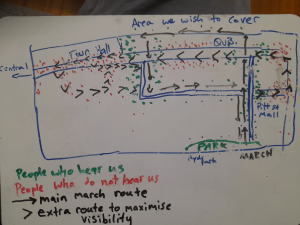 Area we wish to cover
Town Hall
QVB
Central
Pitt st
Mall
PARK
Hyde
Park
MARCH
People who hear us
People who do not hear us
→ main march route
> extra route to maximise
visibility